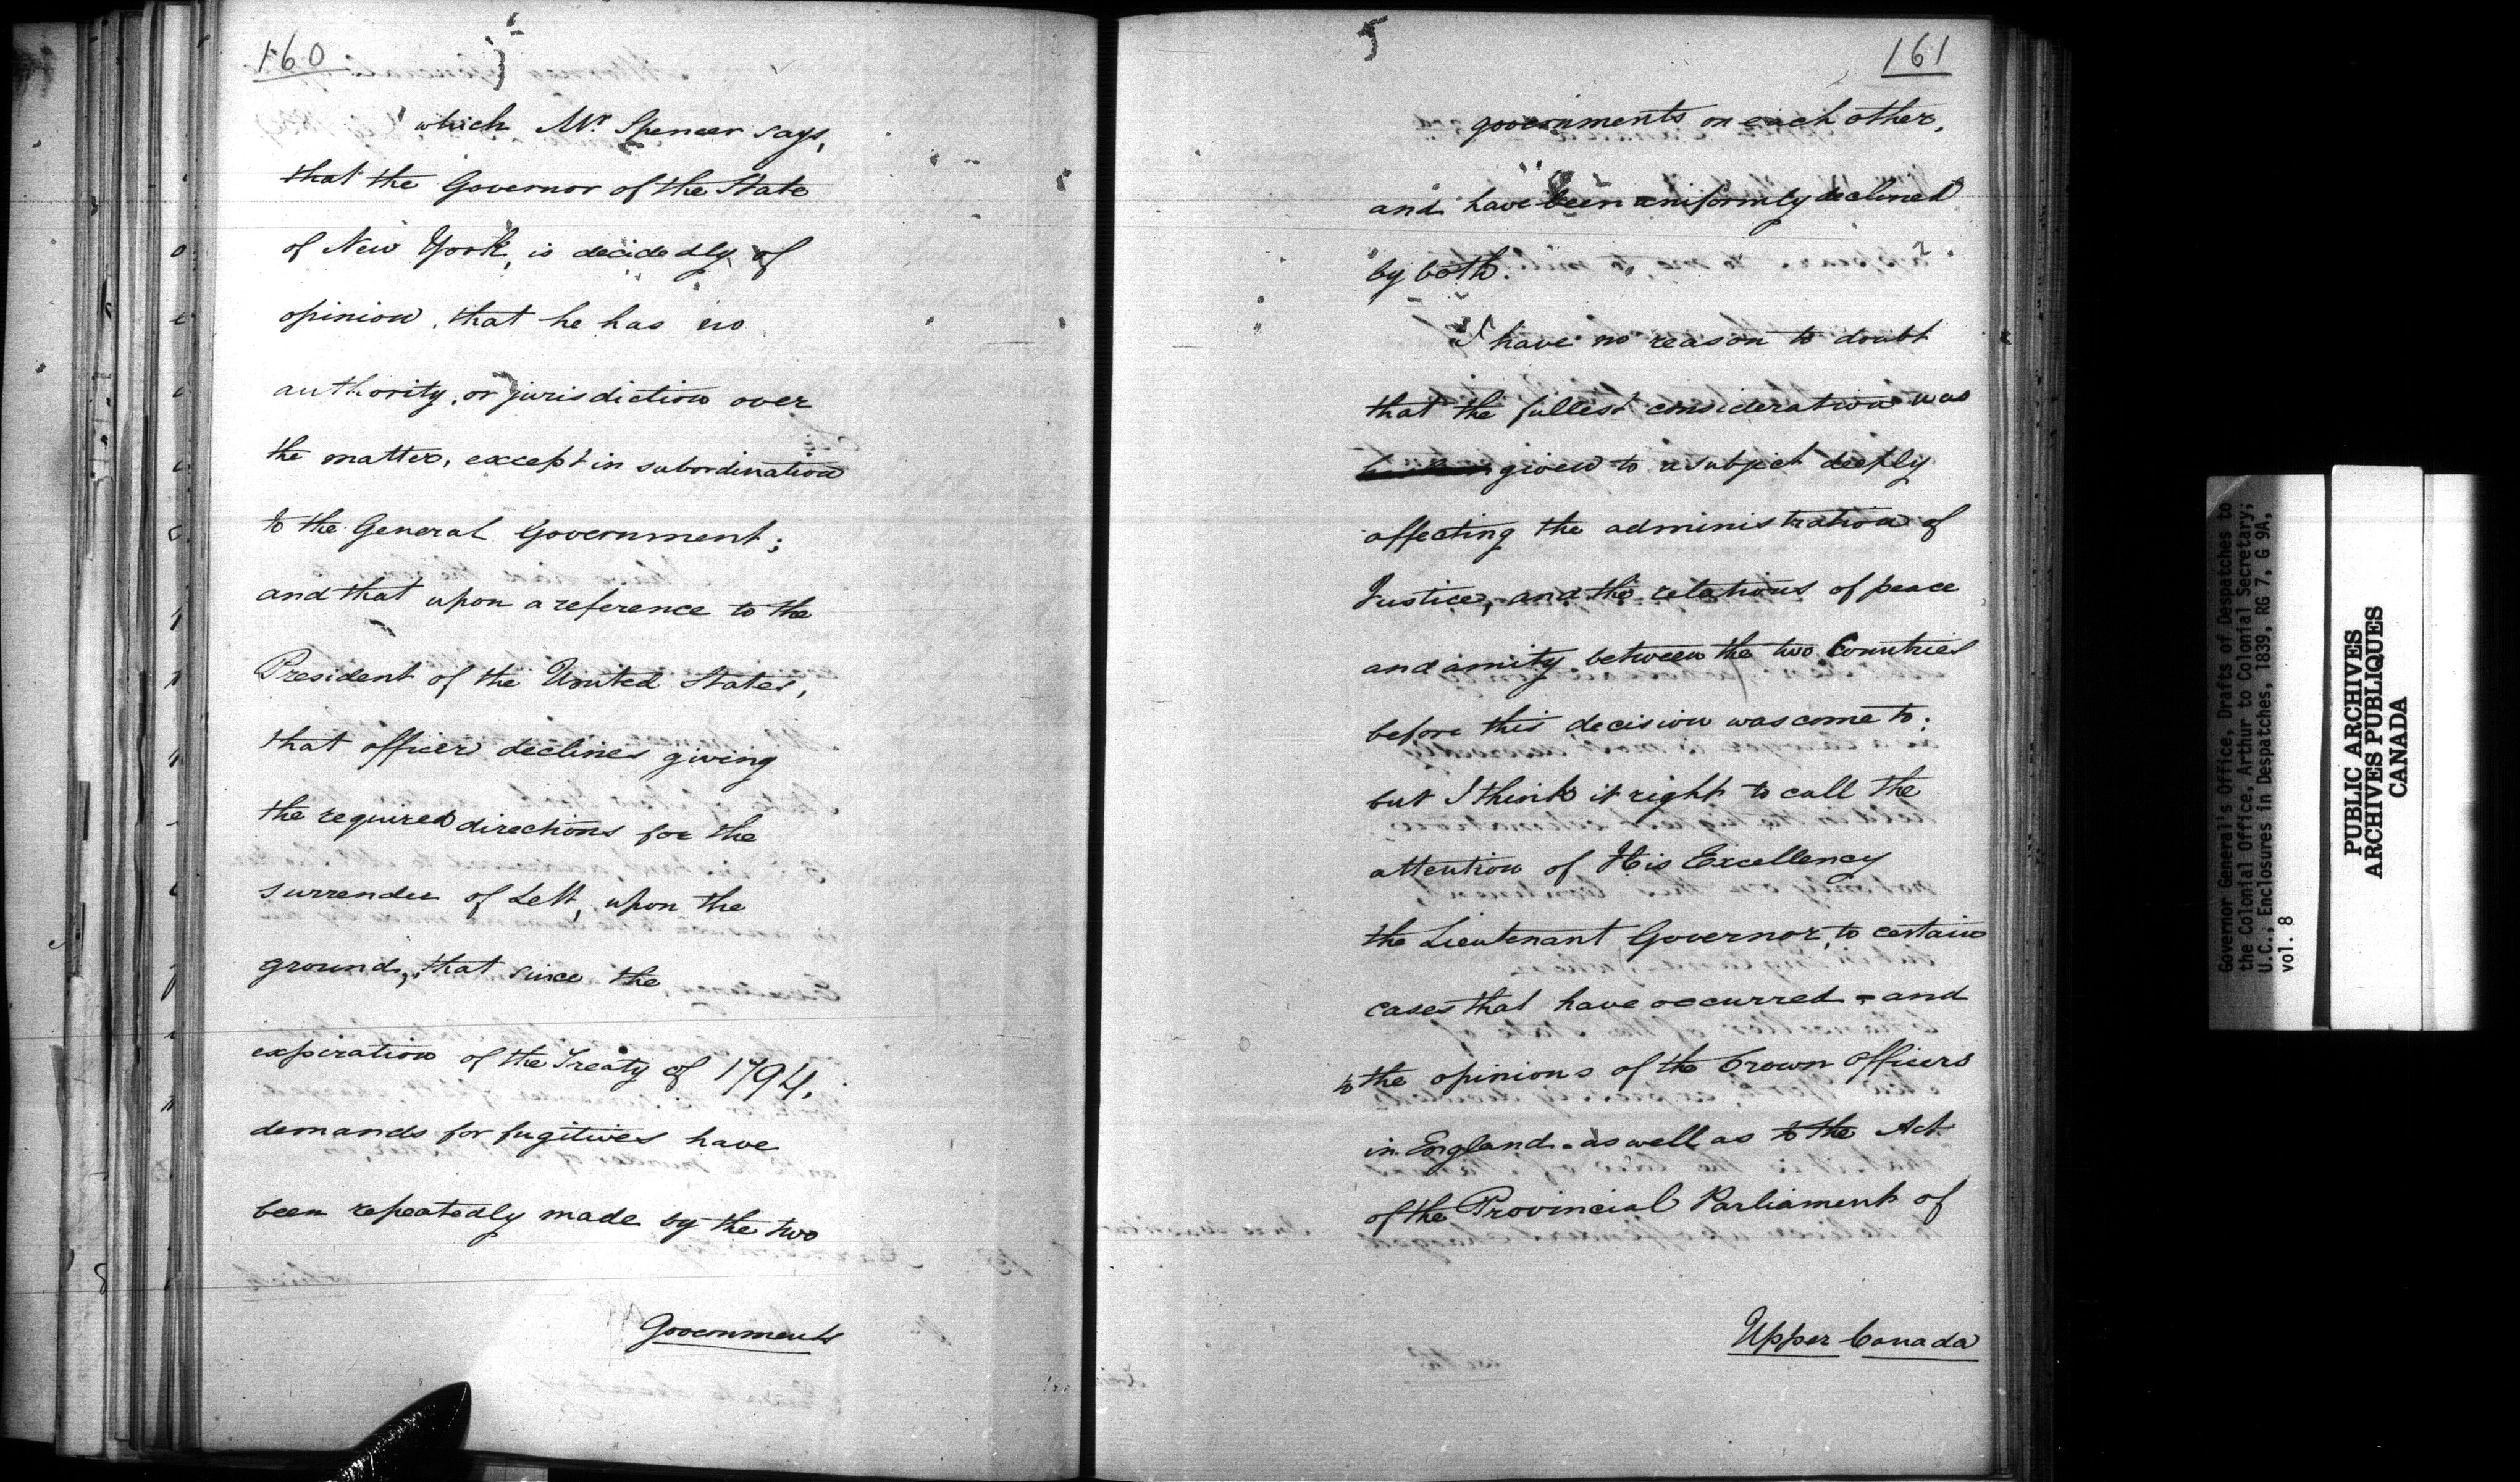 160
which Mr Spencer says,
that the Governor of the State
of New York, is decidedly of
opinion, that he has no
authority, or jurisdiction over
the matter, except in subordination
to the General Government;
and that upon a reference to the
President of the United States,
that officer declines giving
the required directions for the
surrender of Lett, upon the
grounds, that since the
expiration of the Treaty of 1794,
demands for fugitives have
been repeatedly made by the two
Governments
161
governments on each other,
and have been uniformly declined
by both.
I have no reason to doubt
that the fullest consideration was
given to a subject deeply
affecting the administration of
Justice, and the relations of peace
and amity between the two Countries
before this decision was come to;
but I think it right to call the
attention of His Excellency
the Lieutenant Governor, to certain
cases that have occurred - and
to the opinions of the Crown Officers
in England - as well as to the Act
of the Provincial Parliament of
Upper Canada
Governor General's Office, Drafts of Despatches to
the Colonial Office, Arthur to Colonial Secretary;
U.C., Enclosures in Despatches, 1839, RG 7, G 9A,
vol. 8
PUBLIC ARCHIVES
ARCHIVES PUBLIQUES
CANADA